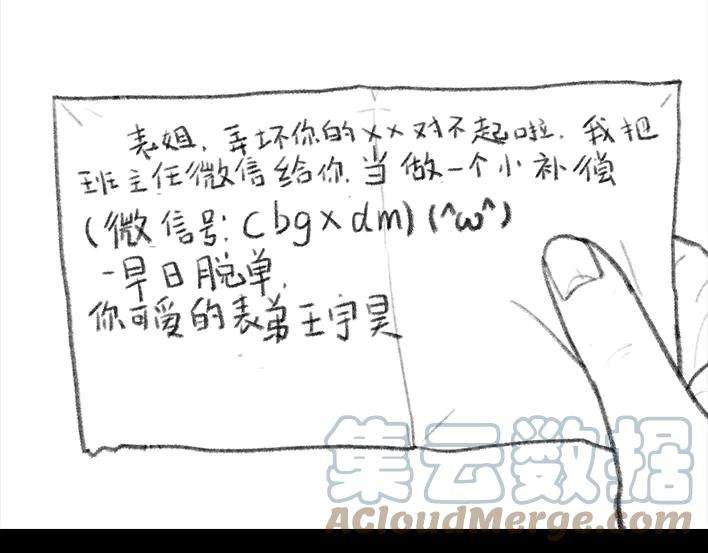 表姐，弄坏你的xx对不起啦，我把
班主任微信给你，当做一个小补偿
(微信号: cbgxdm) (^ω^)
-早日脱单，
你可爱的表弟王宇昊
集云数据
ACloudMerge.com